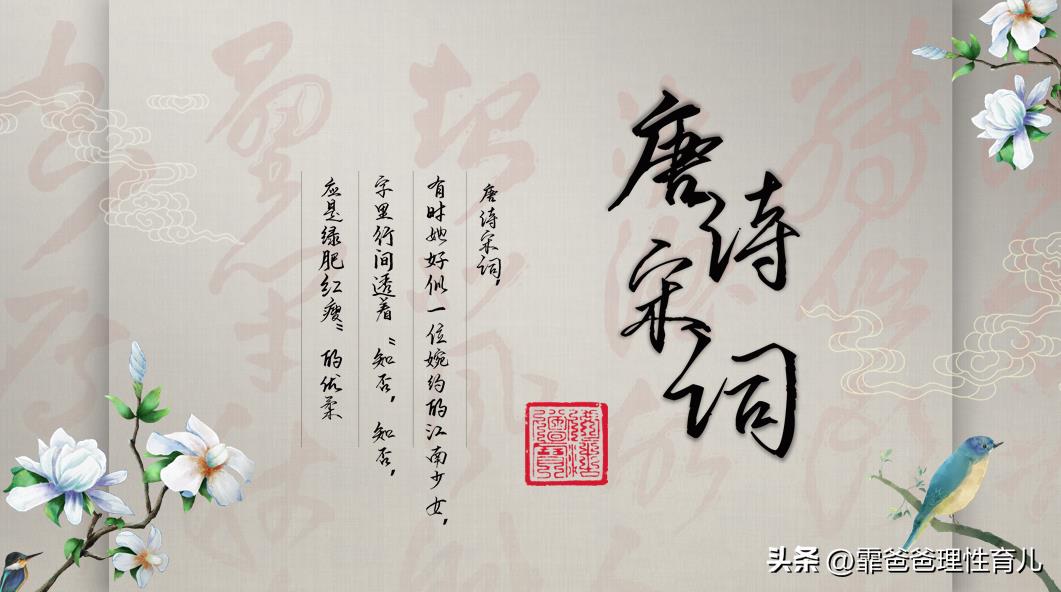 唐诗宋词
唐诗宋词，
有时她好似一位婉约的江南少女，
字里行间透着“知否，知否，
应是绿肥红瘦”的优柔
头条 @霏爸爸理性育儿